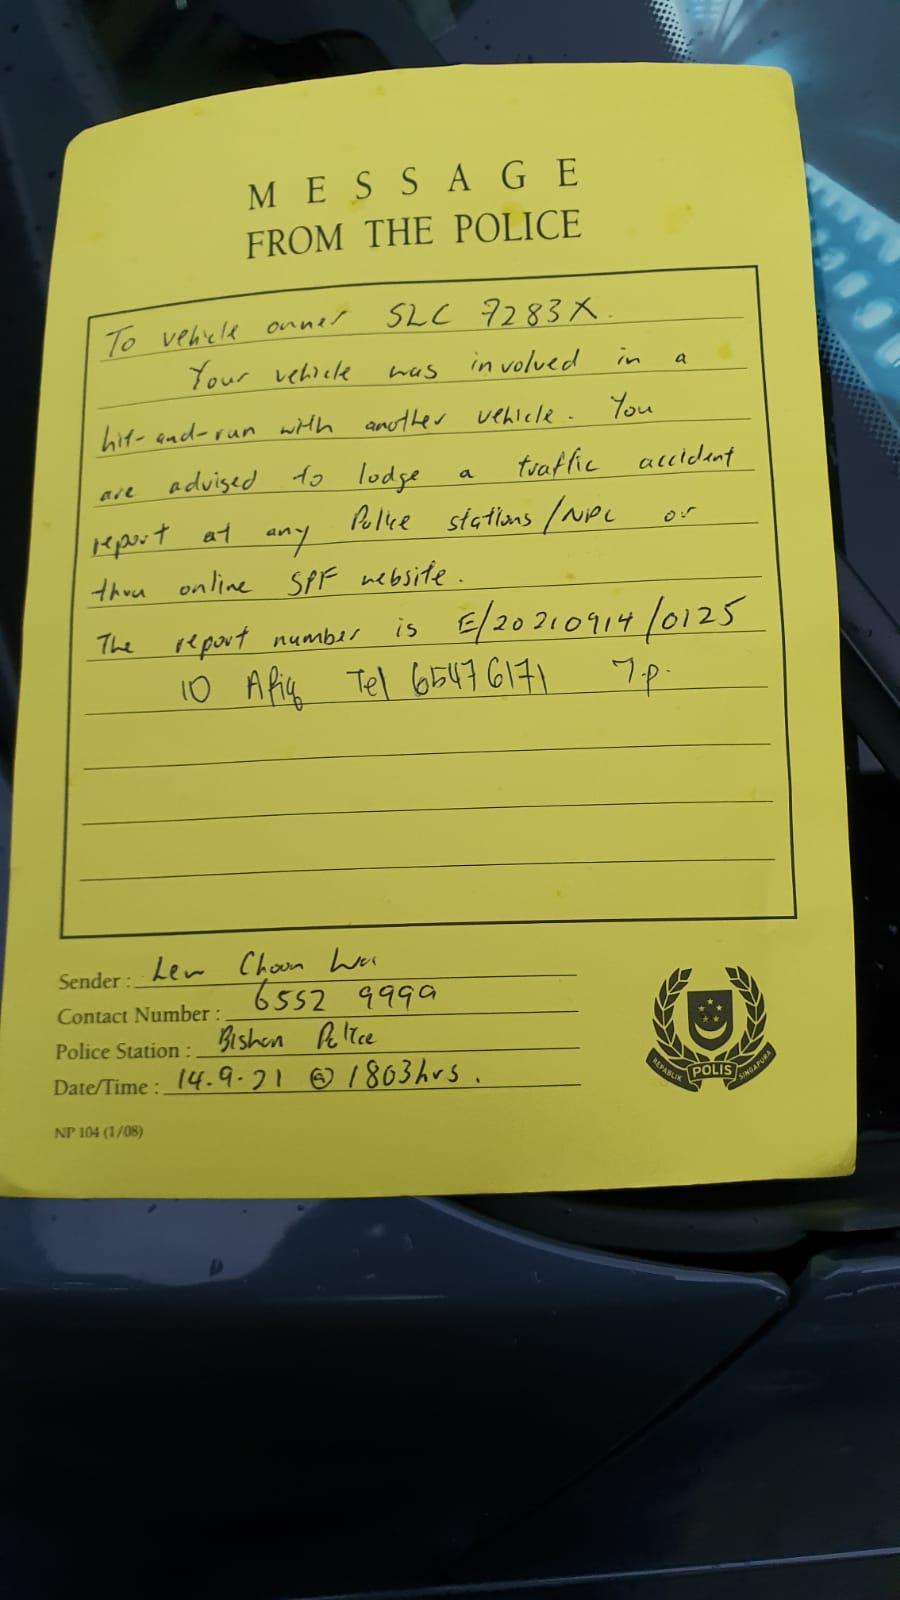 MESSAGE
FROM THE POLICE
To vehicle owner SLC 7283X.
Your vehicle was involved in a
hit-and-run with another vehicle. You
are advised to lodge a traffic accident
report at any Police stations/NPC or
thru online SPF website.
The report number is E/20210914/0125
IO Afiq Tel 65476171 T.P.
Sender: Lew Choon
Contact Number: 6552 9999
Police Station: Bishan Police
Date/Time: 14.9.21 @ 1803hrs.
REPABLIK POLIS SINGAPURA
NP 104 (1/08)